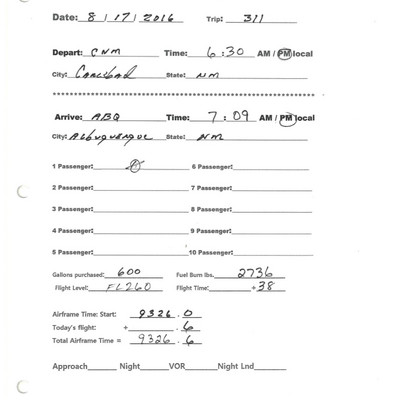 Date: 8/17/2016 Trip: 311
Depart: CNM Time: 6:30 AM / PM local
City: Carlsbad State: NM
****************************************************************
Arrive: ABQ Time: 7:09 AM / PM local
City: Albuquerque State: NM
1 Passenger: 6 Passenger:
2 Passenger: 7 Passenger:
3 Passenger: 8 Passenger:
4 Passenger: 9 Passenger:
5 Passenger: 10 Passenger:
Gallons purchased: 600 Fuel Burn lbs. 2736
Flight Level: FL260 Flight Time: +38
Airframe Time: Start: 9326.0
Today's flight: + .6
Total Airframe Time = 9326.6
Approach Night VOR Night Lnd